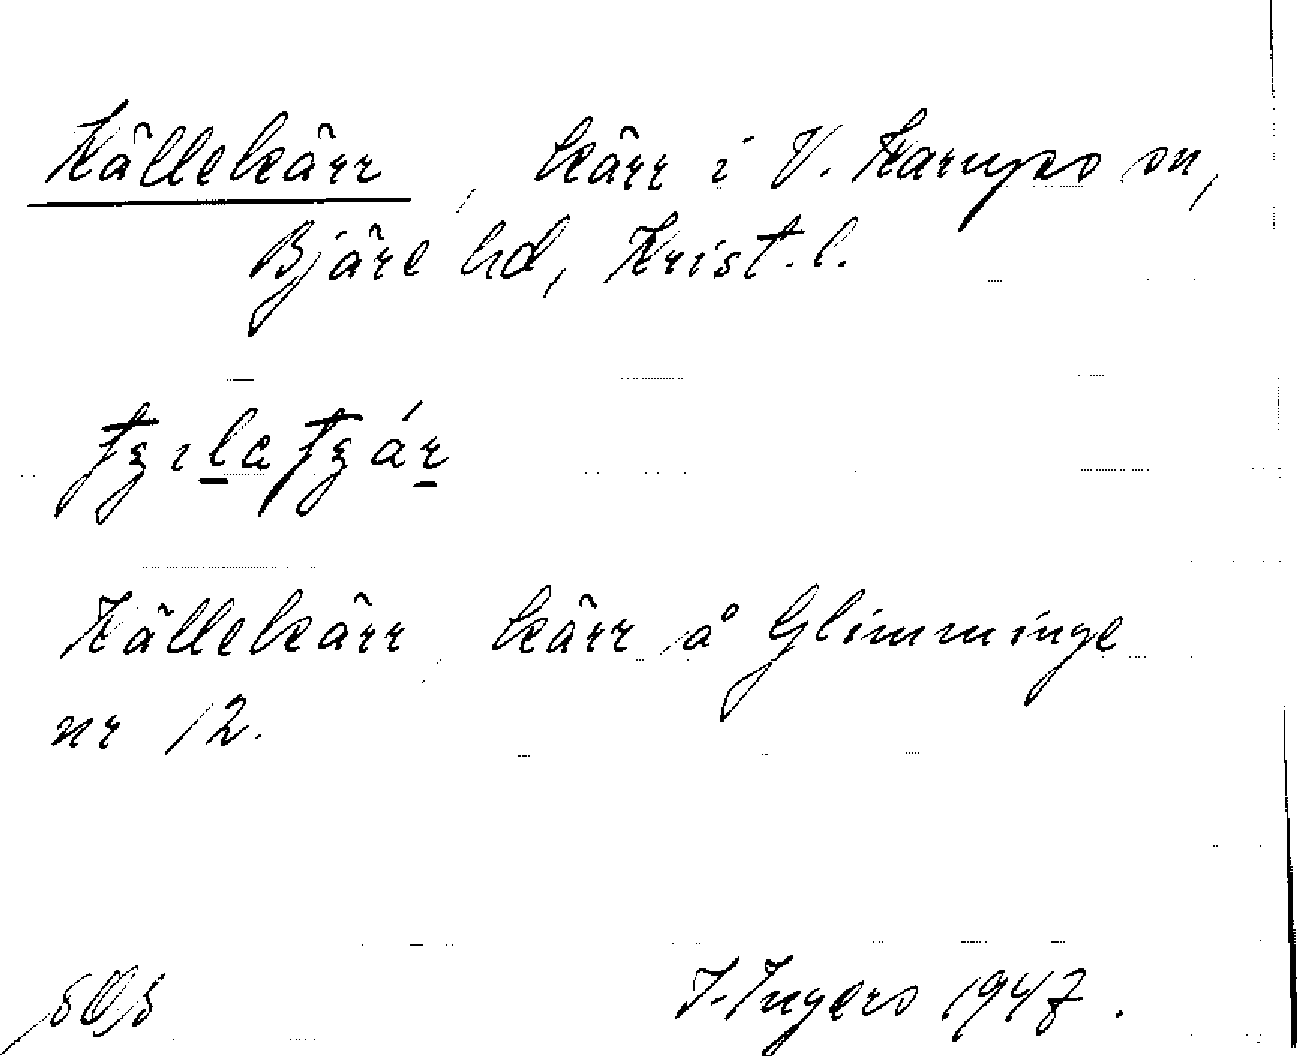 Källekärr, kärr i V. Karups sn,
Bjäre hd, Krist. l.
Källekärr, kärr å Glimminge
nr 12.
I. Ingers 1947.